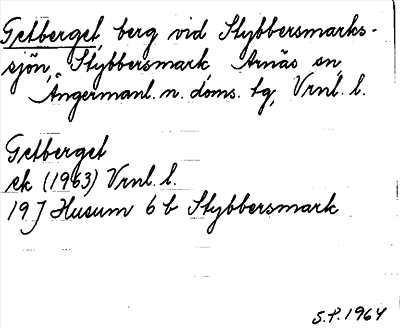 Getberget, berg vid Stybbersmarks-
sjön, Stybbersmark, Arnäs sn,
Ångermanl. n. doms. tg, Vrnl. l.
Getberget
ek (1963) Vrnl. l.
19 J Husum 6 b Stybbersmark
S.P. 1964